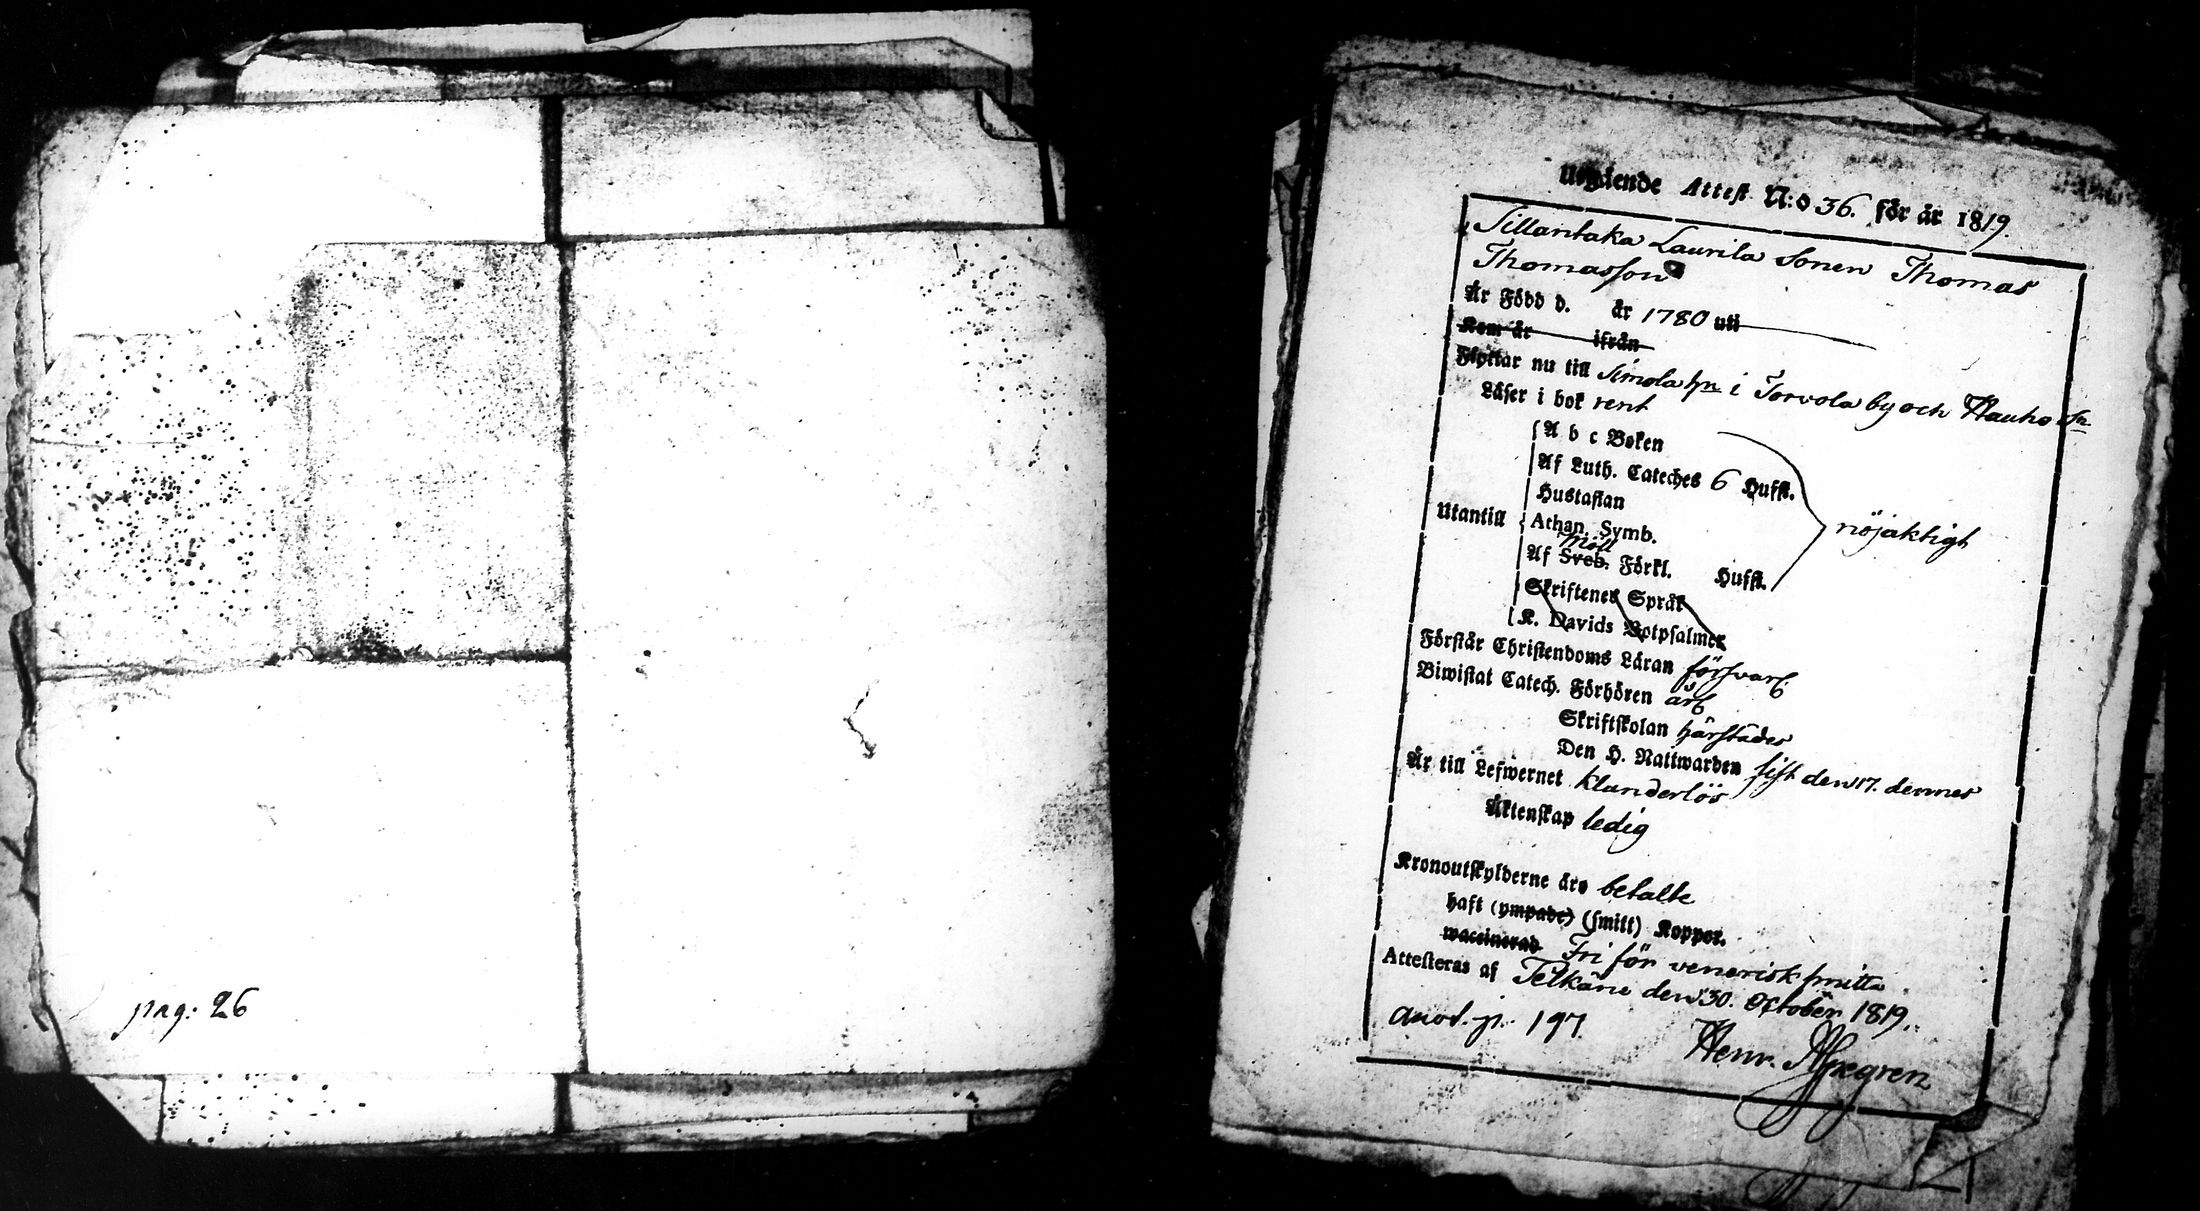 pag: 26
Utgående Attest N:o 36. för år 1819.
Tillantaka Laurila Sonen Thomas
Thomasson
Är Född d. år 1780 uti
Kom år ifrån
Flyttar nu till Simola hn i Torvola by och Hauho Sn
Läser i bok rent
A b c Boken
Af Luth. Cateches 6 Hufst.
Hustaflan
Utantill Athan. Symb. nöjaktigt
Möll
Af Sveb. Förkl. Hufst.
Skriftenes Språk
K. Davids Botpsalmer
Förstår Christendoms Läran försvarl
Biwistat Catech. Förhören årl
Skriftskolan härstädes
Den H. Nattwarden sist den 17. dennes
Är till Lefwernet klanderlös
Äktenskap ledig
Kronoutskylderne äro betalte
haft (ympade) (smitt) Koppor.
waccinerad Fri för venerisk smitta
Attesteras af Pelkäne den 30. October 1819.
anot. p. 197
Henr. Ahlgren